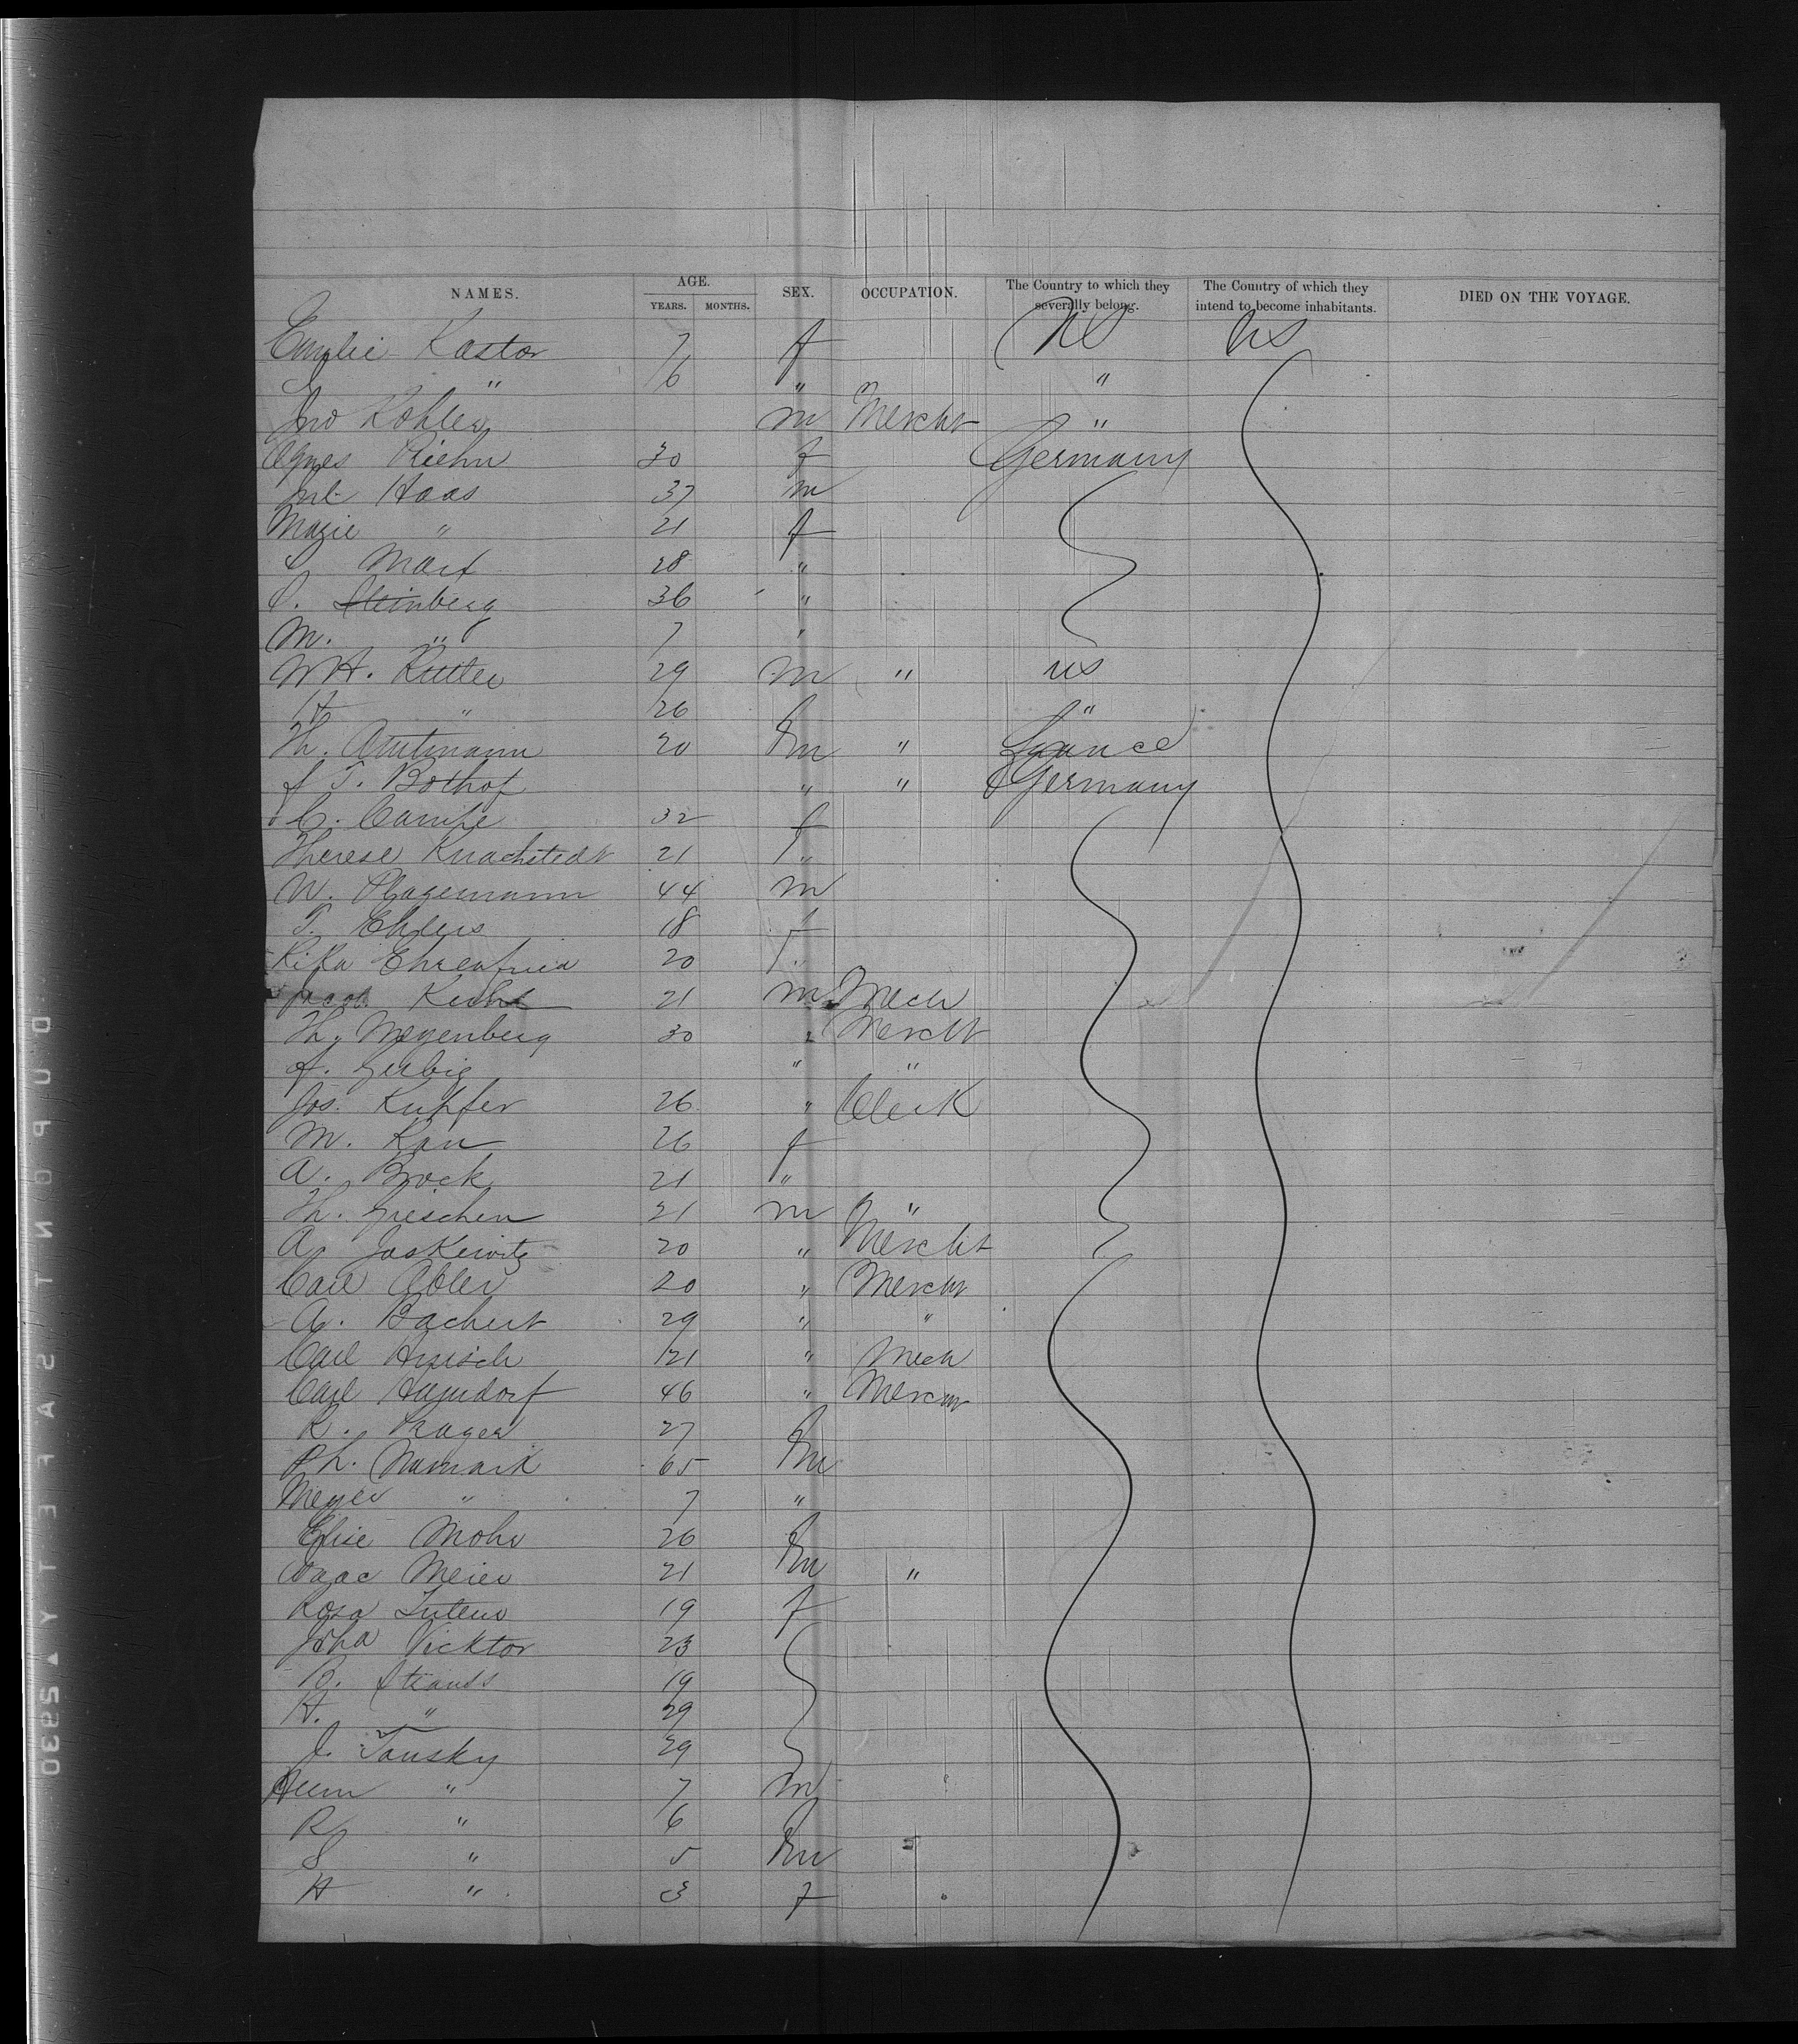 NAMES. AGE. YEARS. MONTHS. SEX. OCCUPATION. The Country to which they severally belong. The Country of which they intend to become inhabitants. DIED ON THE VOYAGE.
Emilie Kastor 7 f US US
" 6 " "
Jno Kohler m Mercht "
Agnes Riehn 30 f Germany
Haas 37 m
Mazie " 21 f
Marx 28 "
S. Steinberg 36 "
M. " 7 "
WH. Rutter 29 m " us
H " 26 f "
Th. Amtmann 20 m " France
T. Bothof " " Germany
C. Camhe 32 f
Therese Knachstedt 21 "
W. Plagemann 44 m
T. Ehlers 18 f
Rika Ehrenfried 20 "
Jacob 21 m Mech
Th. Meyenberg 30 " Mercht
A. Gerbig " "
Jos. Kupfer 26 " Clerk
M. Rau 26 f
A. Brock 21 "
Th. Greschen 21 m "
A. Jaskewitz 20 " Mercht
Carl Abler 20 " Mercht
A. Bachert 29 " "
Carl 21 " Mech
Carl Hagendorf 46 " Mercht
R. Prager 27 f
Ph. Numark 65 m
Meyer " 7 "
Elise Mohr 26 f
Isaac Meier 21 m "
Rosa 19 f
Joha Vicktor 23
B. Strauss 19
H. " 29
J. Tausky 29
Herm " 7 m
R " 6 f
S " 5 m
H " 3 f
DUPONT SAFETY ▲ 5930